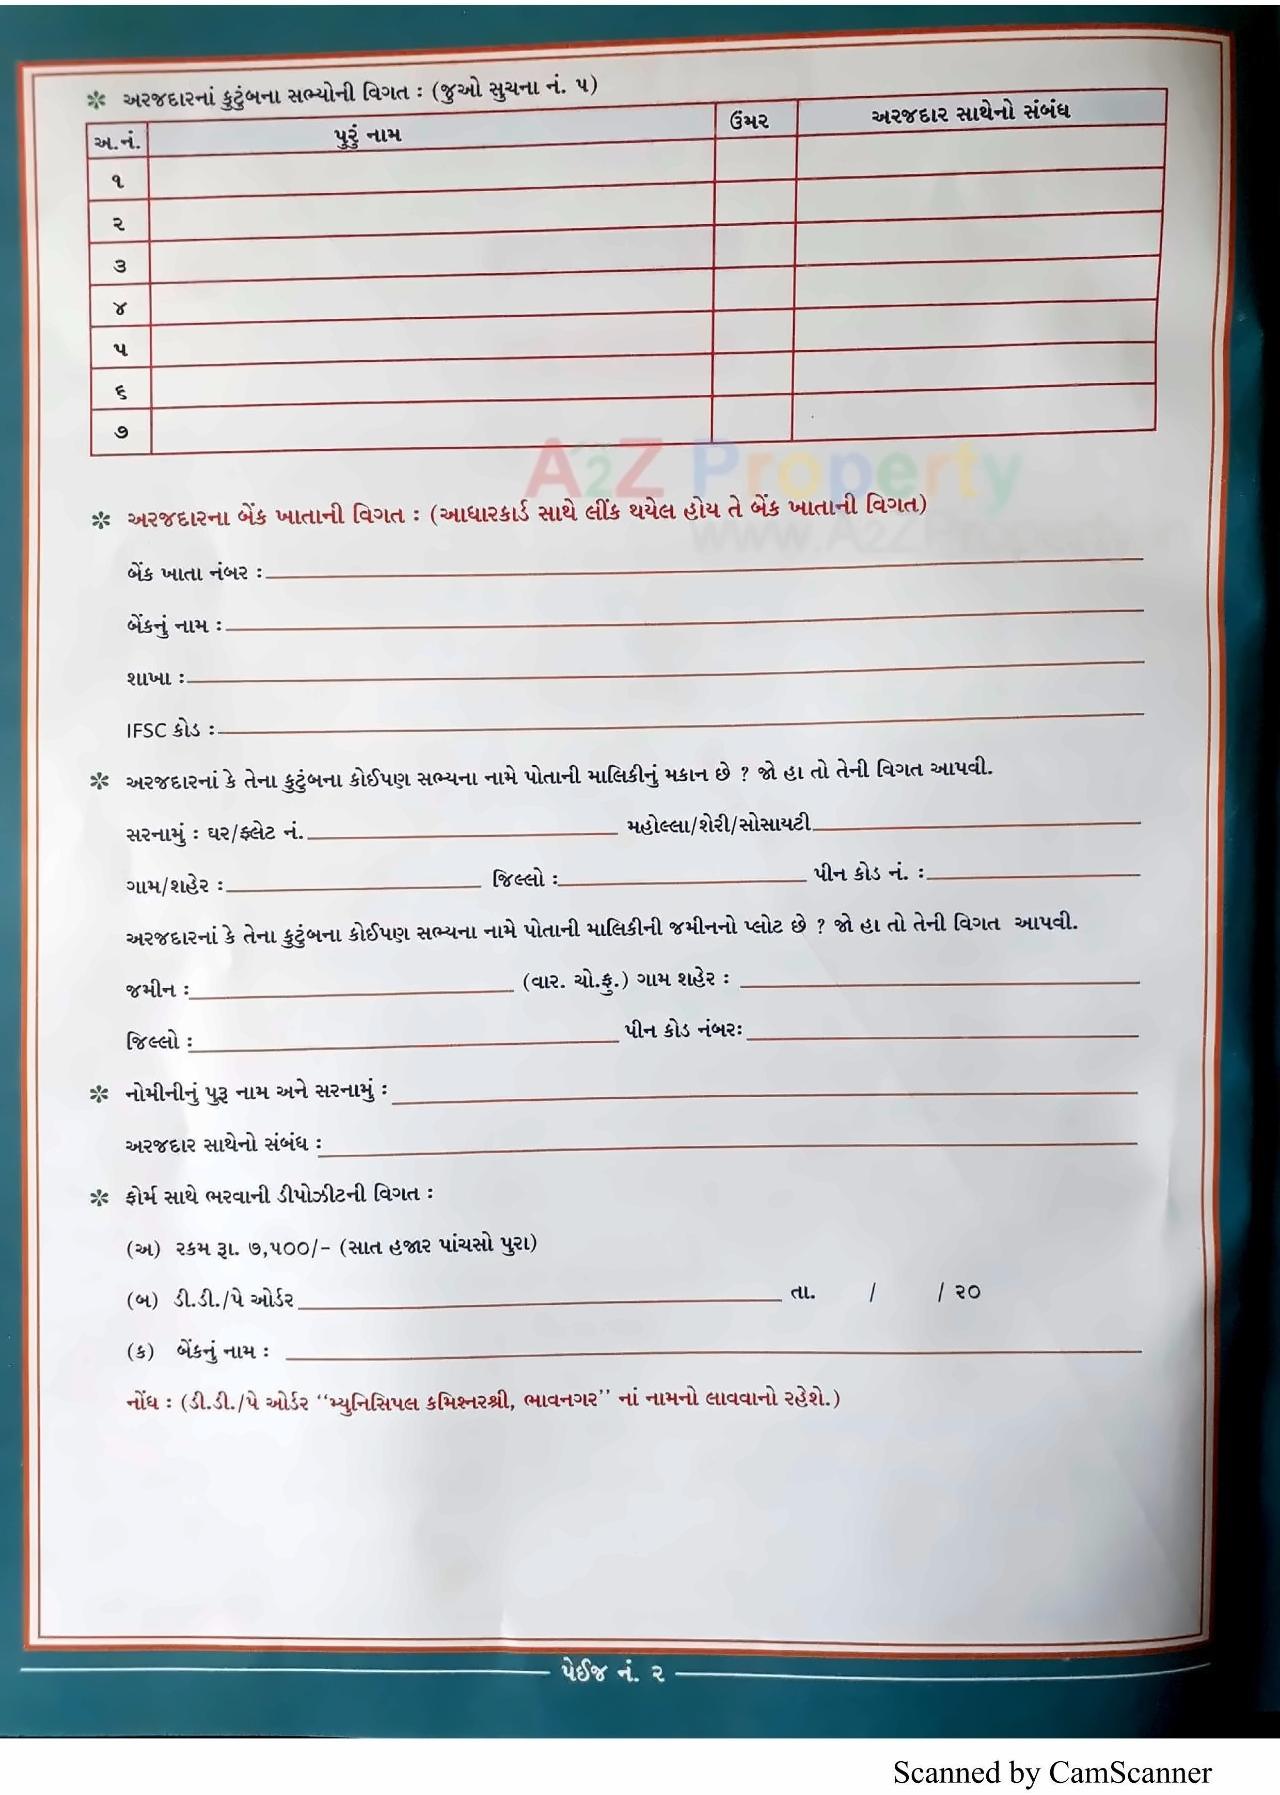 અરજદારનાં કુટુંબના સભ્યોની વિગત : (જુઓ સુચના નં. ૫)
અ.નં. પુરું નામ ઉંમર અરજદાર સાથેનો સંબંધ
૧
૨
૩
૪
૫
૬
૭
A2Z Property
www.A2ZProperty.in
અરજદારના બેંક ખાતાની વિગત : (આધારકાર્ડ સાથે લીંક થયેલ હોય તે બેંક ખાતાની વિગત)
બેંક ખાતા નંબર :
બેંકનું નામ :
શાખા :
IFSC કોડ :
અરજદારનાં કે તેના કુટુંબના કોઈપણ સભ્યના નામે પોતાની માલિકીનું મકાન છે ? જો હા તો તેની વિગત આપવી.
સરનામું : ઘર/ફ્લેટ નં. મહોલ્લા/શેરી/સોસાયટી
ગામ/શહેર : જિલ્લો : પીન કોડ નં. :
અરજદારનાં કે તેના કુટુંબના કોઈપણ સભ્યના નામે પોતાની માલિકીની જમીનનો પ્લોટ છે ? જો હા તો તેની વિગત આપવી.
જમીન : (વાર. ચો.ફુ.) ગામ શહેર :
જિલ્લો : પીન કોડ નંબર:
નોમીનીનું પુરૂ નામ અને સરનામું :
અરજદાર સાથેનો સંબંધ :
ફોર્મ સાથે ભરવાની ડીપોઝીટની વિગત :
(અ) રકમ રૂા. ૭,૫૦૦/- (સાત હજાર પાંચસો પુરા)
(બ) ડી.ડી./પે ઓર્ડર તા. / / ૨૦
(ક) બેંકનું નામ :
નોંધ : (ડી.ડી./પે ઓર્ડર “મ્યુનિસિપલ કમિશ્નરશ્રી, ભાવનગર” નાં નામનો લાવવાનો રહેશે.)
પેઈજ નં. ૨
Scanned by CamScanner